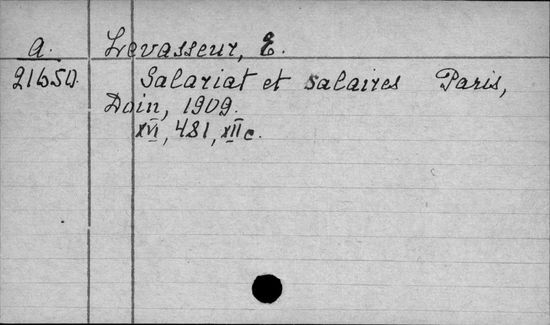 a. Levasseur, E.
21650. Salariat et salaires Paris,
Doin, 1909.
XVI, 481, XII c.